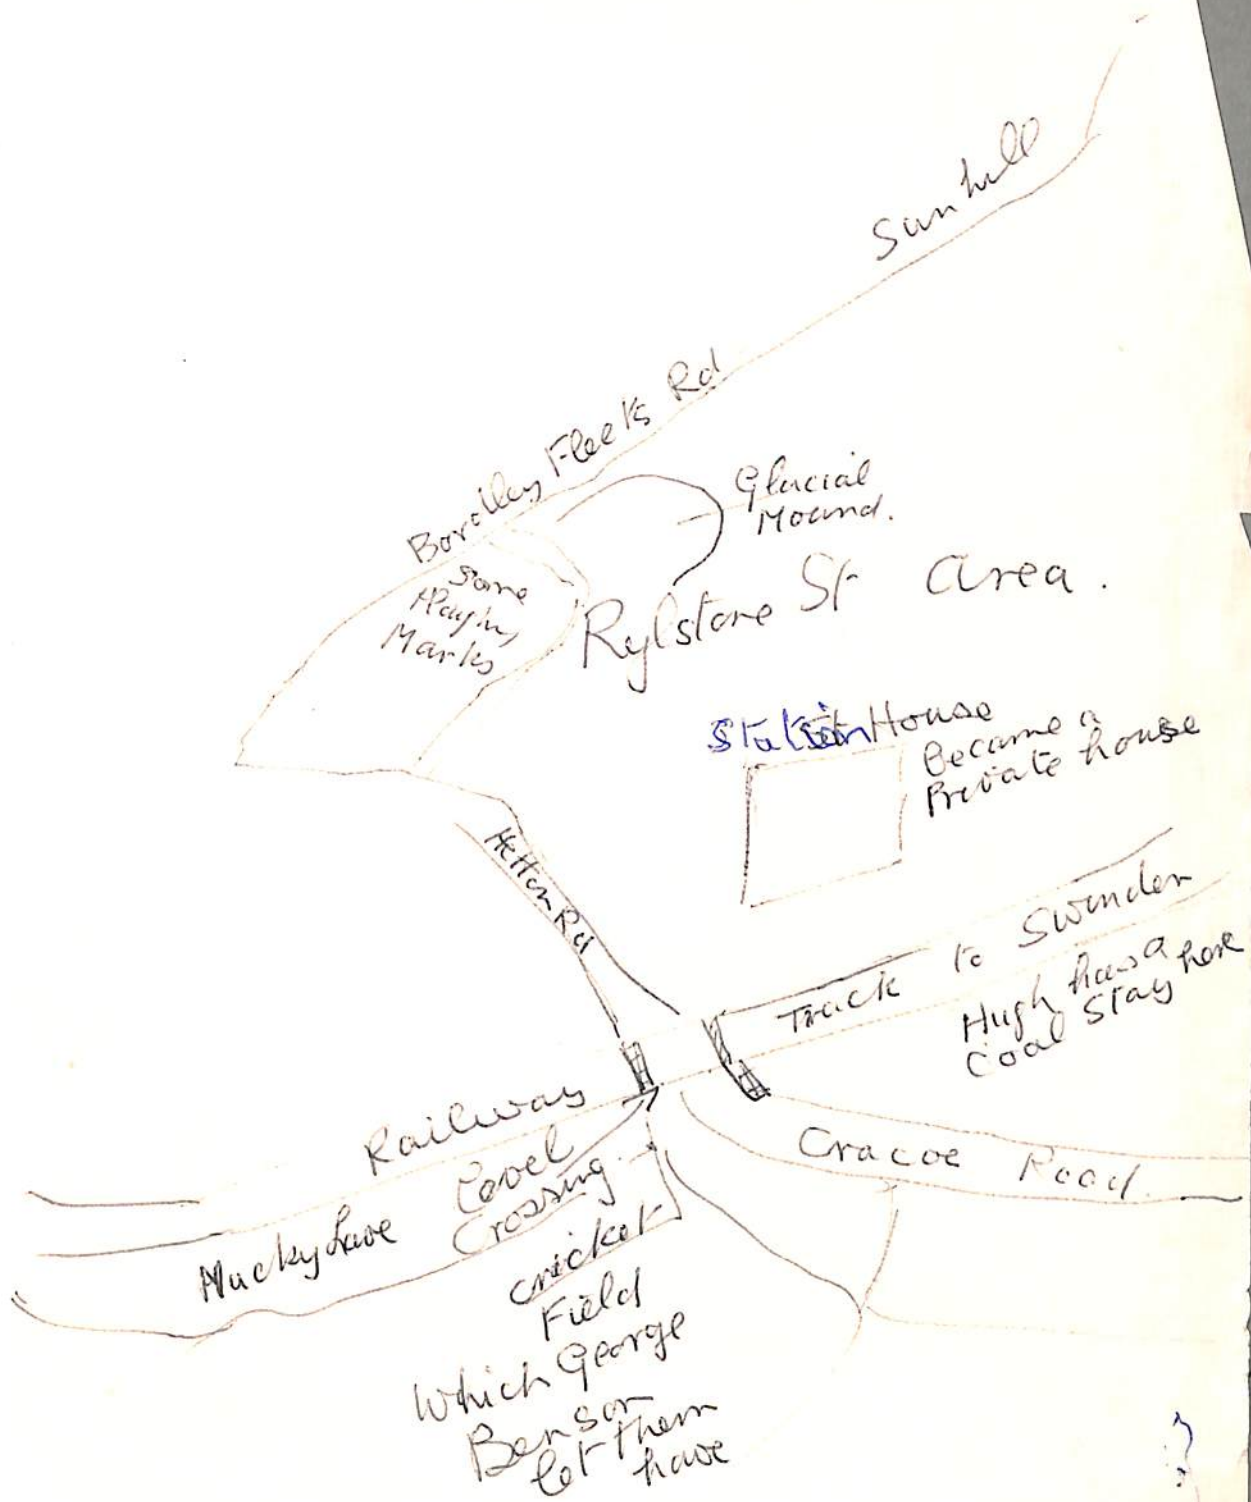 Sunhill
Bordley Fleets Rd
Glacial
Mound.
Some
Marks
Rylstone St Area.
Station House
Became a
Private house
Hetton Rd
Track to Swinden
Hugh has a
Coal Stay here
Railway
Level
Crossing.
Cracoe Road.
Mucky Lane
Cricket
Field
Which George
Benson
let them
have
?